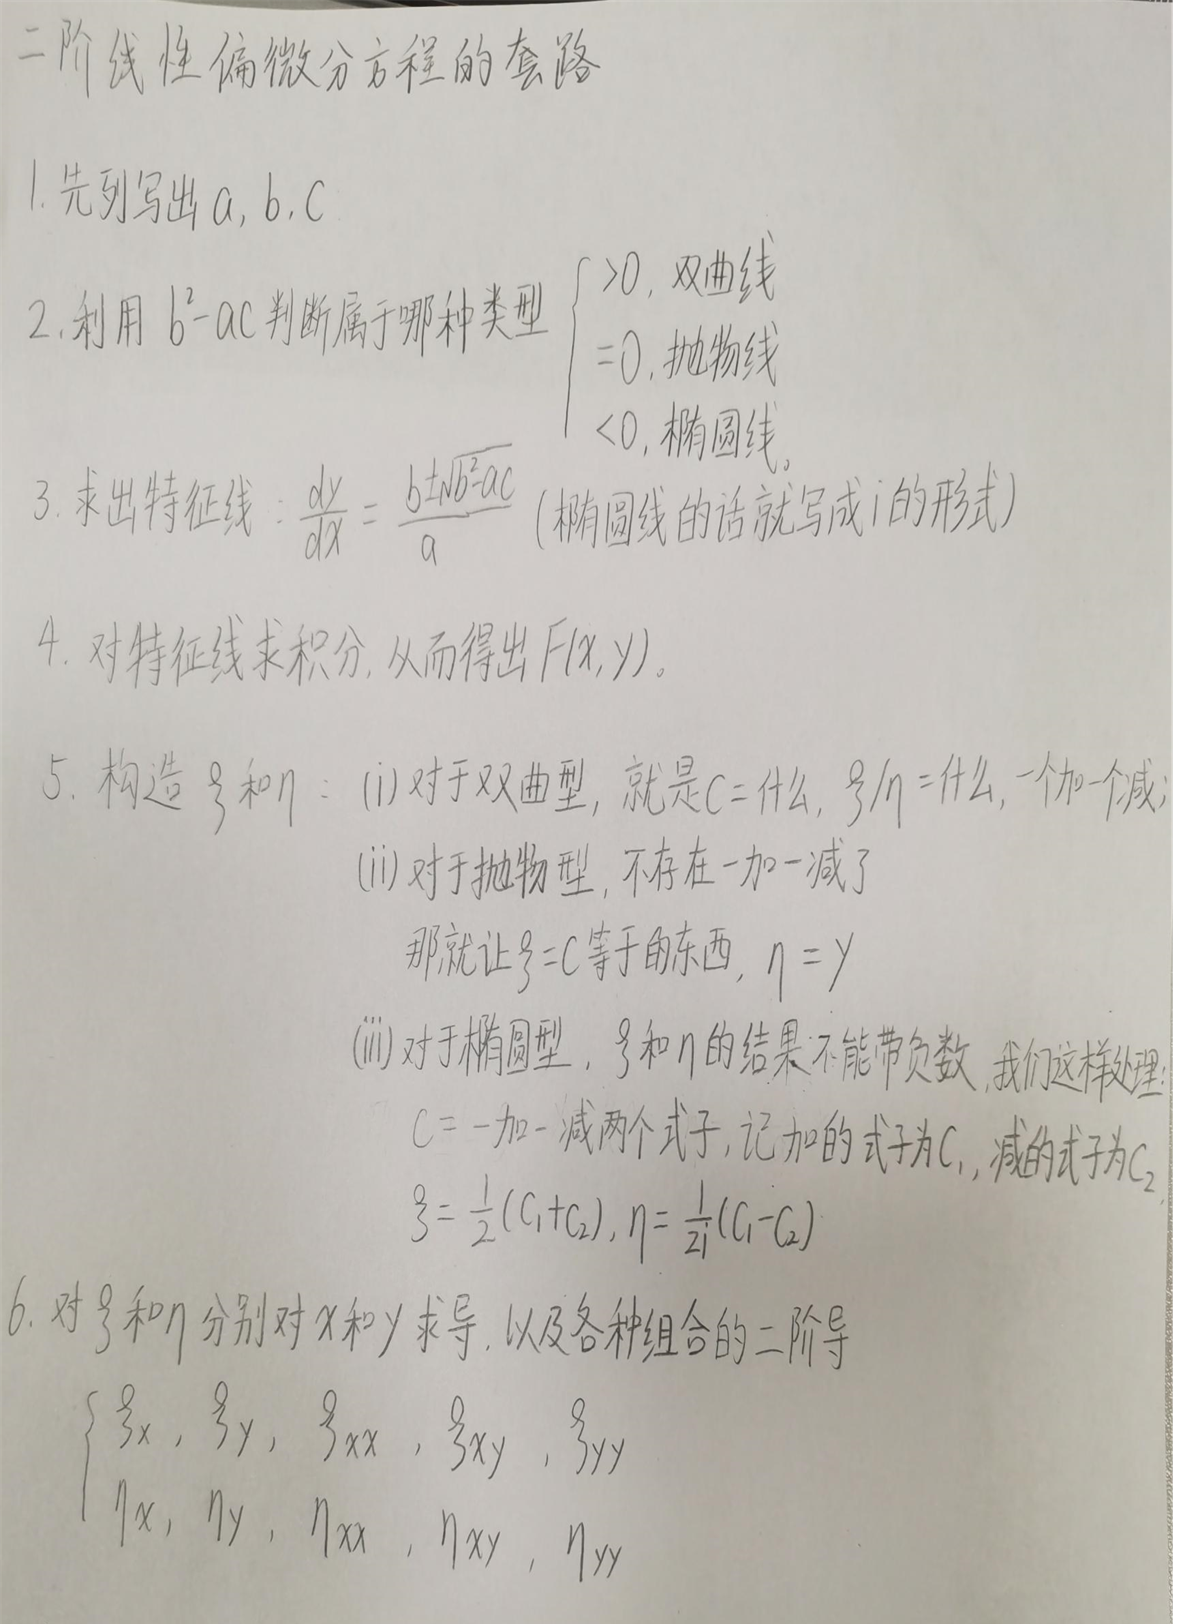 二阶线性偏微分方程的套路
1.先列写出a,b,c
2.利用 b²-ac判断属于哪种类型 { >0,双曲线
=0,抛物线
<0,椭圆线。
3.求出特征线: dy/dx = (b±√(b²-ac))/a (椭圆线的话就写成i的形式)
4.对特征线求积分,从而得出F(x,y)。
5.构造ξ和η: (i)对于双曲型,就是C=什么,ξ/η=什么,一个加一个减;
(ii)对于抛物型,不存在一加一减了
那就让ξ=C等于的东西,η=y
(iii)对于椭圆型,ξ和η的结果不能带负数,我们这样处理:
C=一加一减两个式子,记加的式子为C₁,减的式子为C₂,
ξ=1/2(C₁+C₂),η=1/2i(C₁-C₂)
6.对ξ和η分别对x和y求导,以及各种组合的二阶导
{ ξx, ξy, ξxx, ξxy, ξyy
ηx, ηy, ηxx, ηxy, ηyy